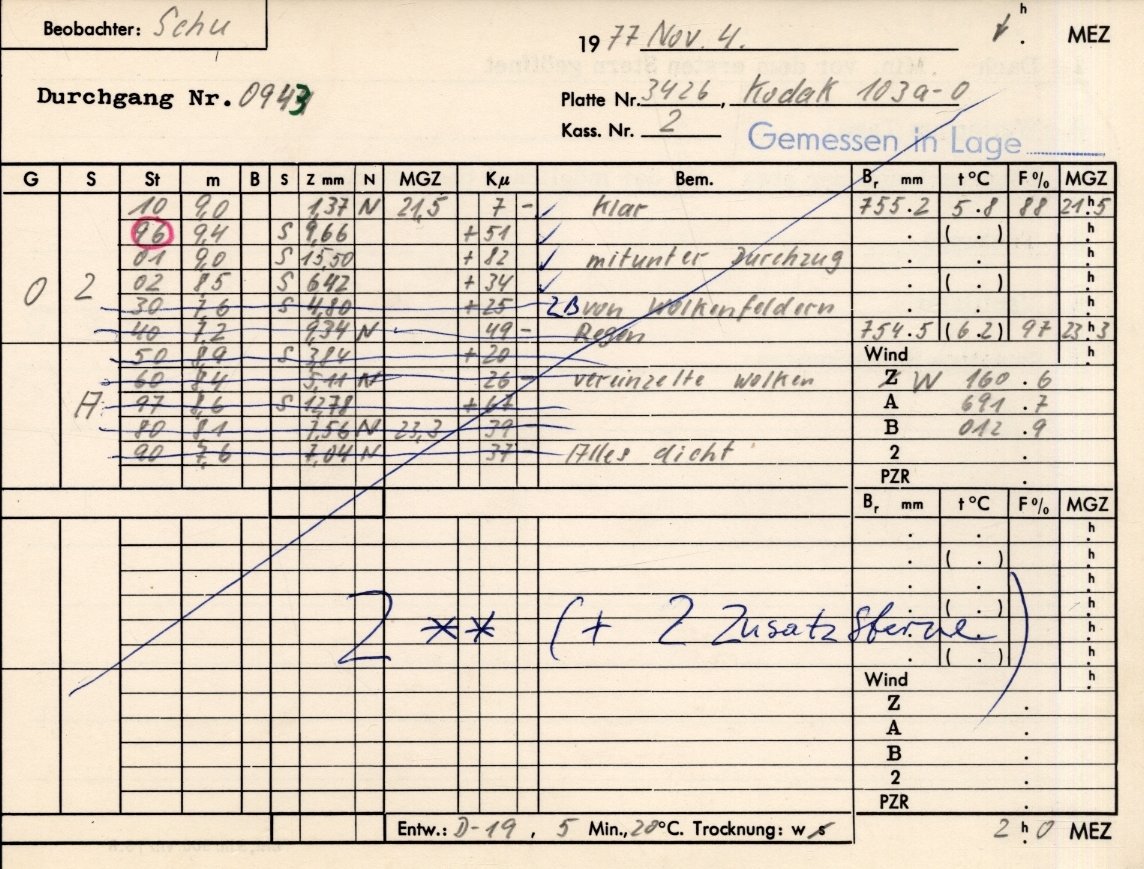 Beobachter: Schu
h
19 77 Nov. 4. . MEZ
Durchgang Nr. 0943
Platte Nr. 3426, Kodak 103a-O
Kass. Nr. 2
Gemessen in Lage
G S St m B S Z mm N MGZ Kμ Bem. Br mm t°C F% MGZ
10 9,0 1,37 N 21,5 7 - klar 755.2 5.8 88 21h5
96 9,4 S 9,66 + 51 . ( . ) h
01 9,0 S 15,50 + 82 mitunter Durchzug . . h
0 2 02 8,5 S 6,42 + 34 . ( . ) h
30 7,6 S 4,80 + 25 2B von Wolkenfeldern . . h
40 7,2 9,34 N 49 - Regen 754.5 (6.2) 97 23h3
50 8,9 S 3,84 + 20 Wind h
60 8,4 5,11 N 26 - vereinzelte Wolken Z W 160.6
A 97 8,6 S 12,78 + 67 A 691.7
80 8,1 7,56 N 23,3 39 - B 012.9
90 7,6 7,04 N 37 - Alles dicht 2 .
PZR .
Br mm t°C F% MGZ
. . h
. ( . ) h
. . h
2 ** (+ 2 Zusatzsterne) . ( . ) h
. . h
. ( . ) h
Wind h
Z .
A .
B .
2 .
PZR .
Entw.: D-19, 5 Min., 20°C. Trocknung: w s 2 h 0 MEZ